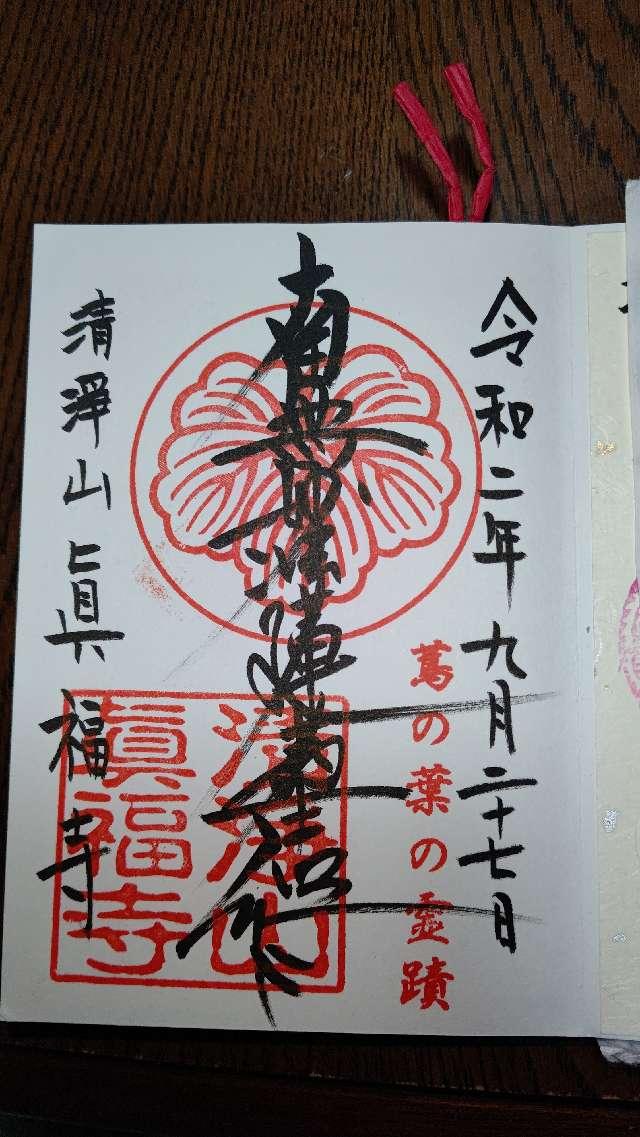 令和二年九月二十七日
蔦の葉の霊蹟
南無妙法蓮華経
清浄山眞福寺
清浄山
眞福寺